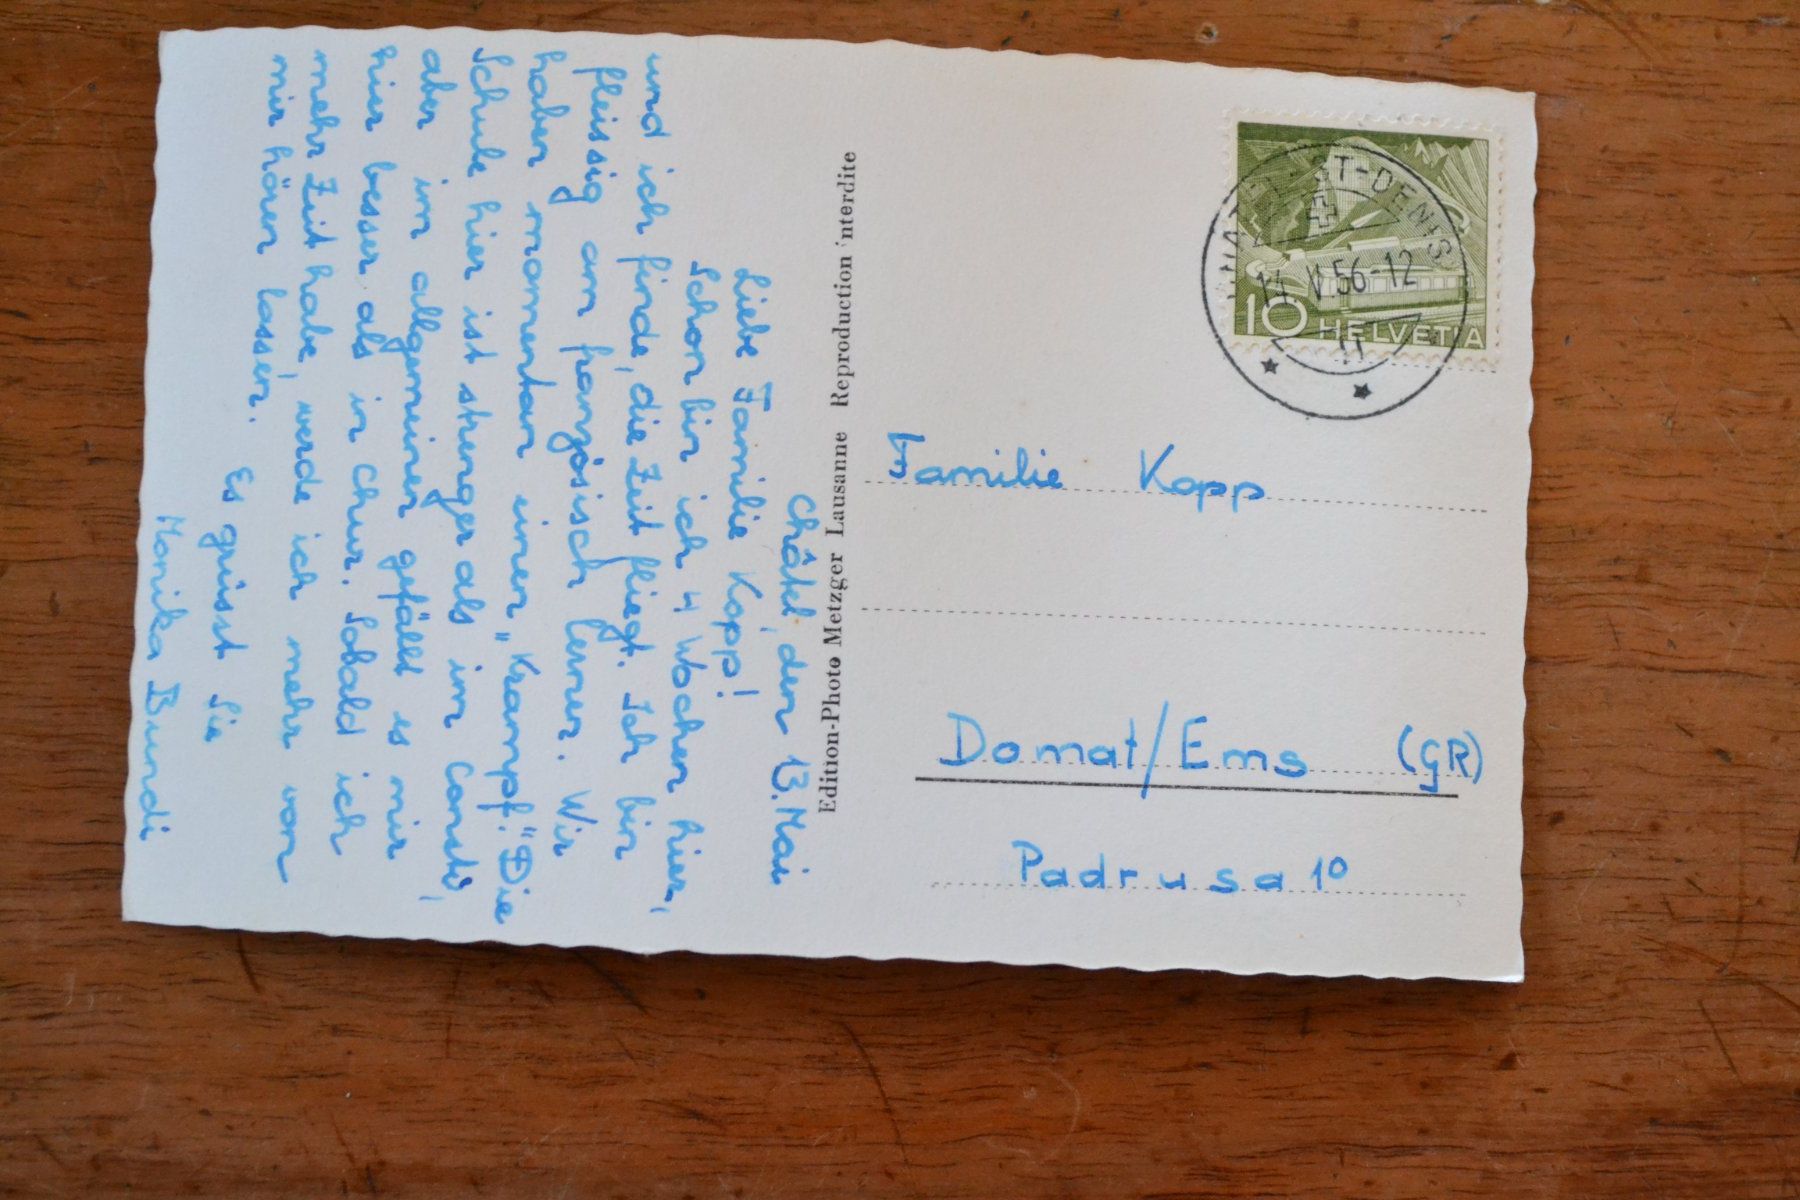 Châtel, den 13. Mai
Liebe Familie Kopp!
Schon bin ich 4 Wochen hier,
und ich finde, die Zeit fliegt. Ich bin
fleissig am französisch lernen. Wir
haben momentan einen „Krampf." Die
Schule hier ist strenger als im Consti,
aber im allgemeinen gefällt es mir
hier besser als in Chur. Sobald ich
mehr Zeit habe, werde ich mehr von
mir hören lassen.
Es grüsst Sie
Monika Bundi
Edition-Photo Metzger Lausanne Reproduction interdite
ST-DENIS
14.V.56-12
10 HELVETIA
Familie Kopp
Domat/Ems (GR)
Padrusa 10